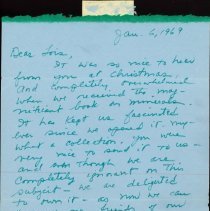 Jan. 6, 1969
Dear Lois,
It was so nice to hear
from you at Christmas,
and completely overwhelmed
when we received the mag-
nificent book on minerals.
It has kept us fascinated
ever since we opened it.
what a collection. You were
very nice to send it to us
and even though we are
completely ignorant on this
subject - we are delighted
to own it - as now we can